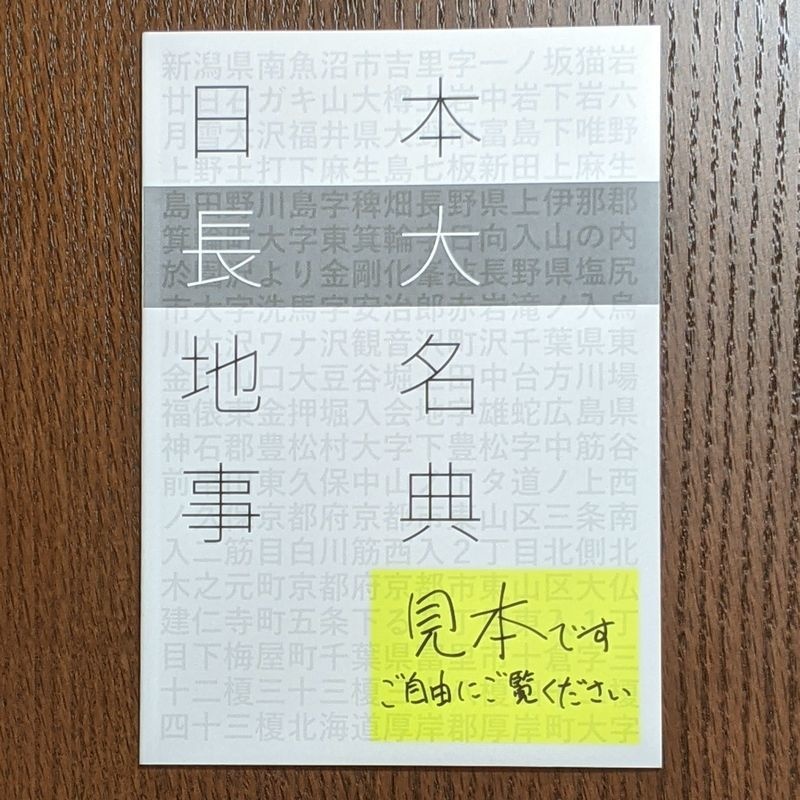 新潟県南魚沼市吉里字一ノ坂猫岩
日本
廿日石ガキ山大樽 岩中岩下岩六
月雲大沢福井県大 富島下唯野
上野土打下麻生島七板新田上麻生
島田野川島字稗畑長野県上伊那郡
長大
箕 大字東箕輪字日向入山の内
於 沢より金剛化峯迄長野県塩尻
市大字洗馬字安治郎赤岩滝ノ入鳥
川大沢ワナ沢観音沢町沢千葉県東
地名
金 口大豆谷堀 中台方川場
福俵東金押堀入会地字雄蛇広島県
神石郡豊松村大字下豊松字中筋谷
事典
前 東久保中山 タ道ノ上西
ノ 京都府京都 山区三条南
入二筋目白川筋西入２丁目北側北
木之元町京都府京都市東山区大仏
建仁寺町五条下る 入１丁
目下梅屋町千葉県富里市十倉字三
十二榎三十三榎
四十三榎北海道厚岸郡厚岸町大字
見本です
ご自由にご覧ください